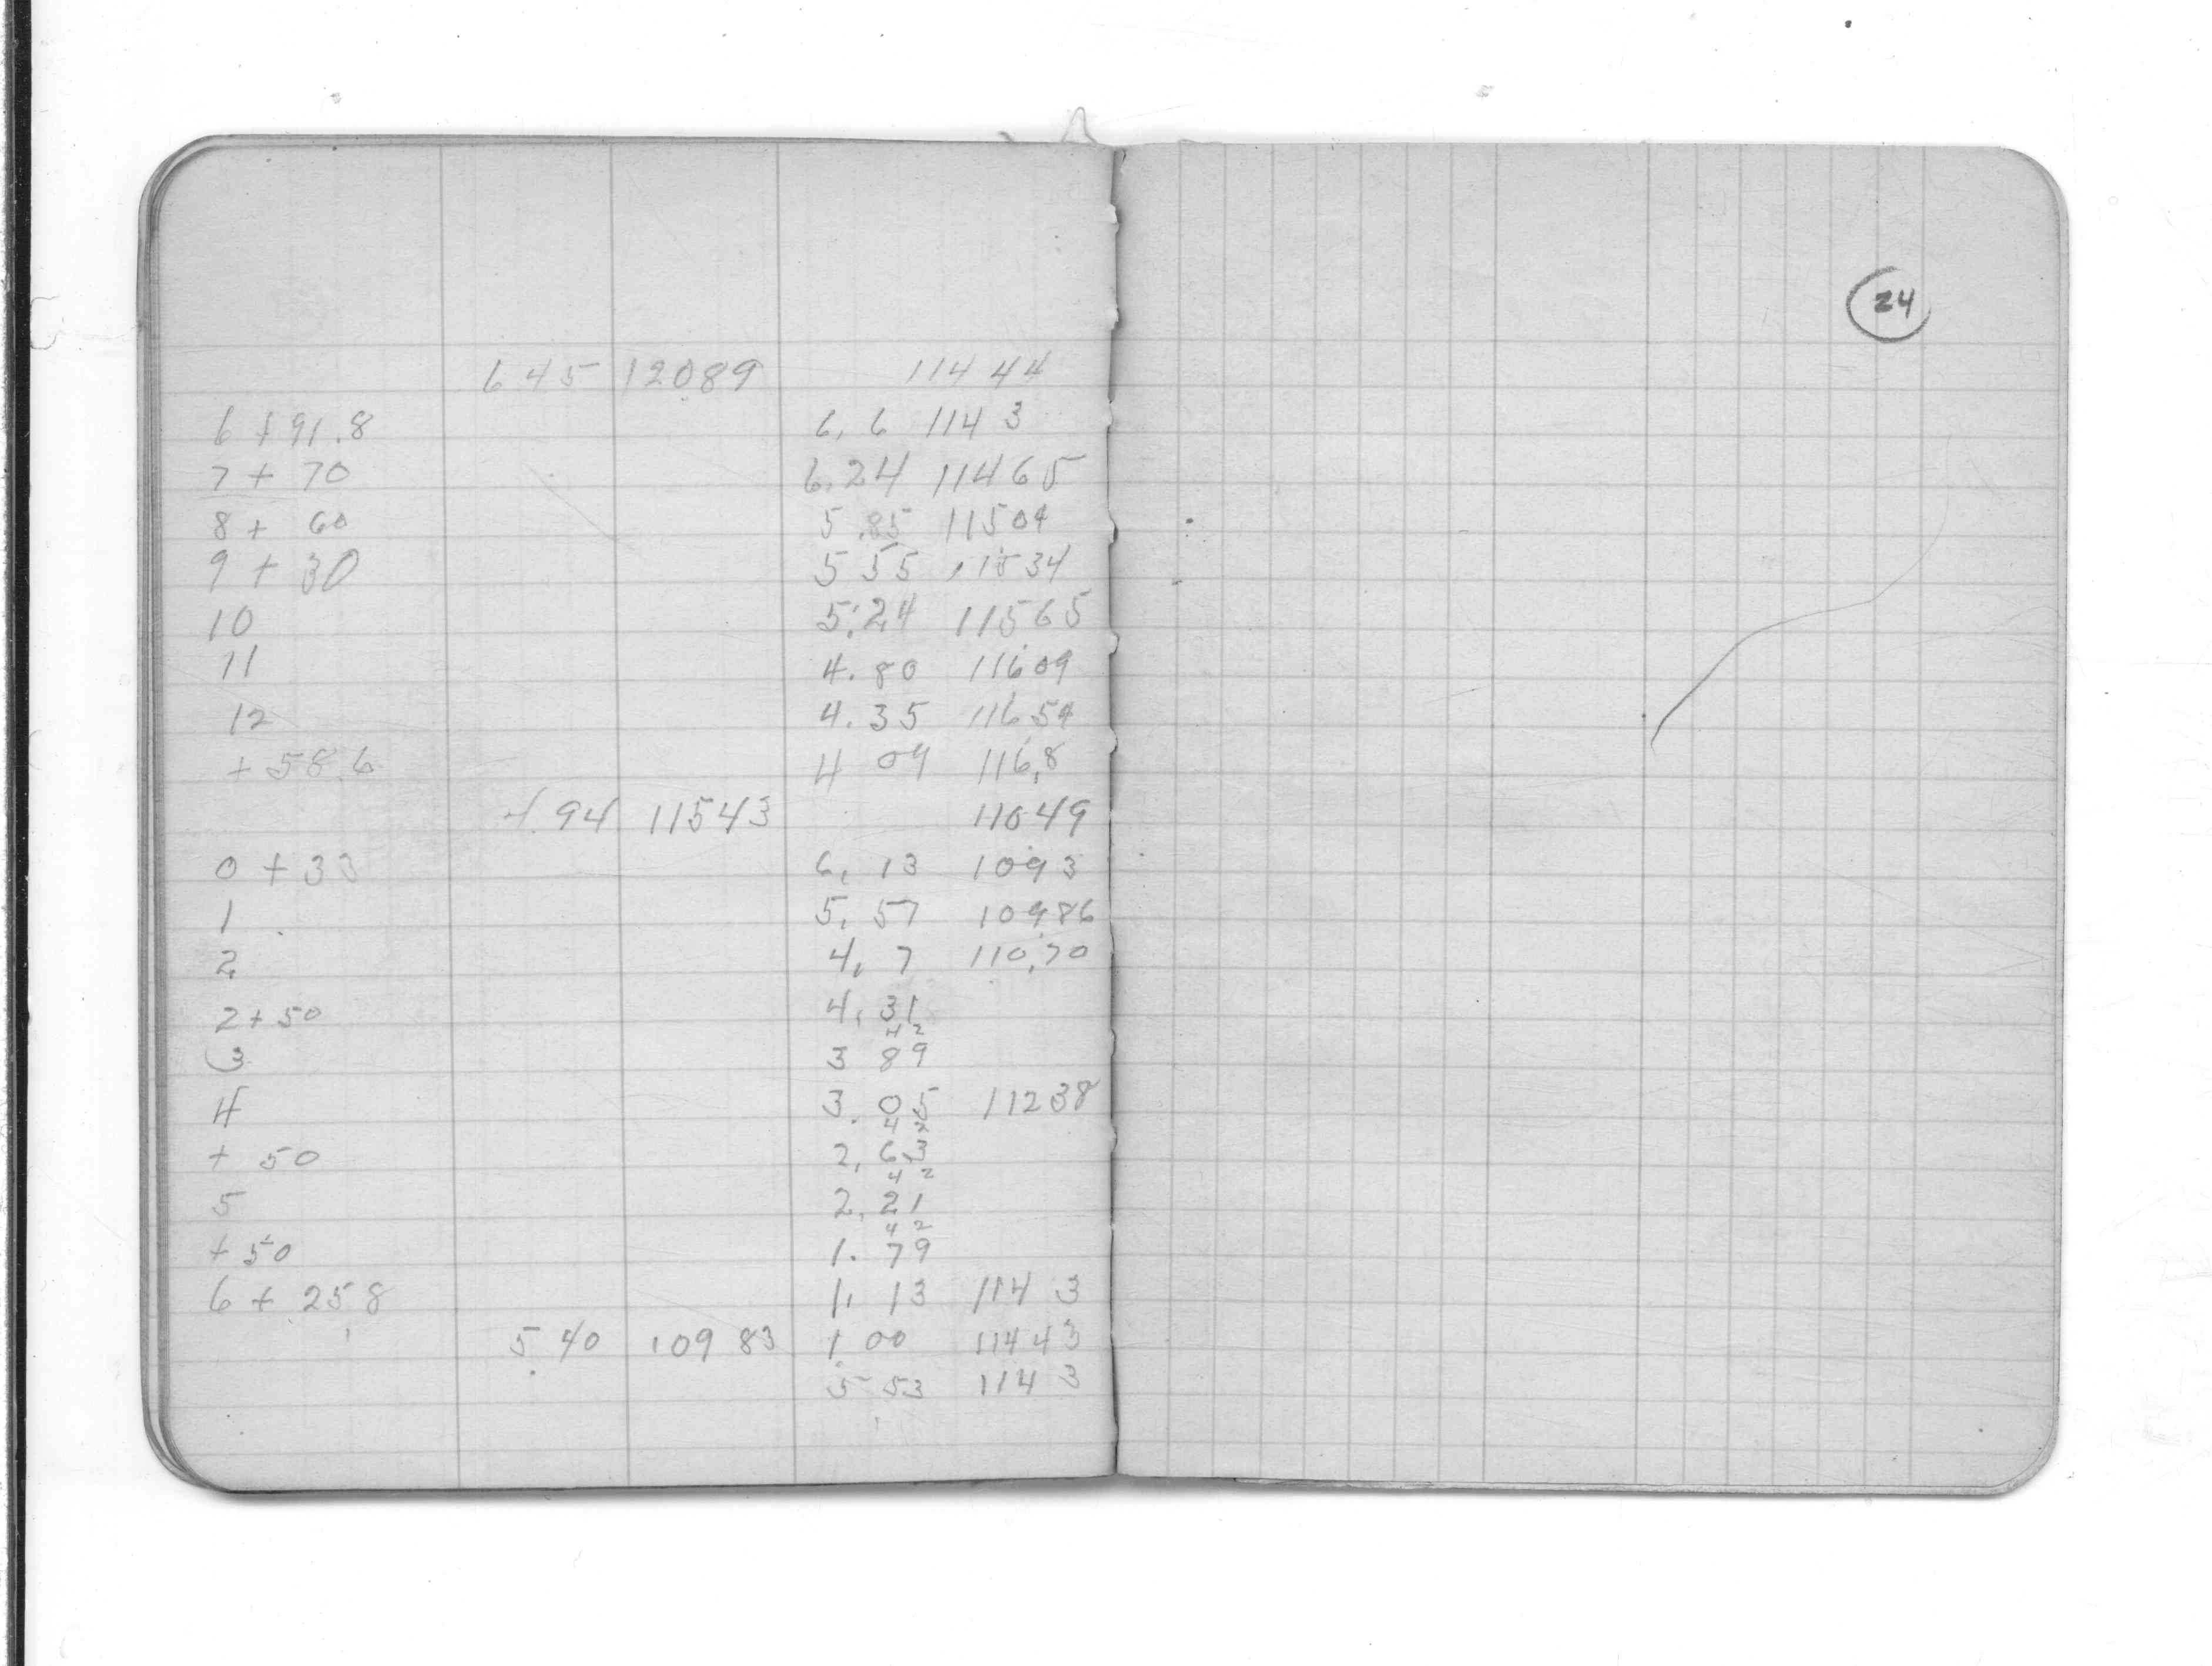 645 12089 11444
6 + 91.8 6. 6 114 3
7 + 70 6.24 11465
8 + 60 5.85 11504
9 + 30 5 55 11534
10 5.24 11565
11 4.80 11609
12 4.35 11654
+ 58.6 4 09 116.8
4.94 11543 11049
0 + 33 6. 13 1093
1 5. 57 10986
2 4. 7 110.70
2+50 4. 31
4 2
3 3 89
4 3. 05 11238
4 2
+ 50 2. 63
4 2
5 2. 21
4 2
+ 50 1. 79
6 + 25 8 1. 13 114 3
5.40 109 83 1 00 11443
5 53 114 3
24